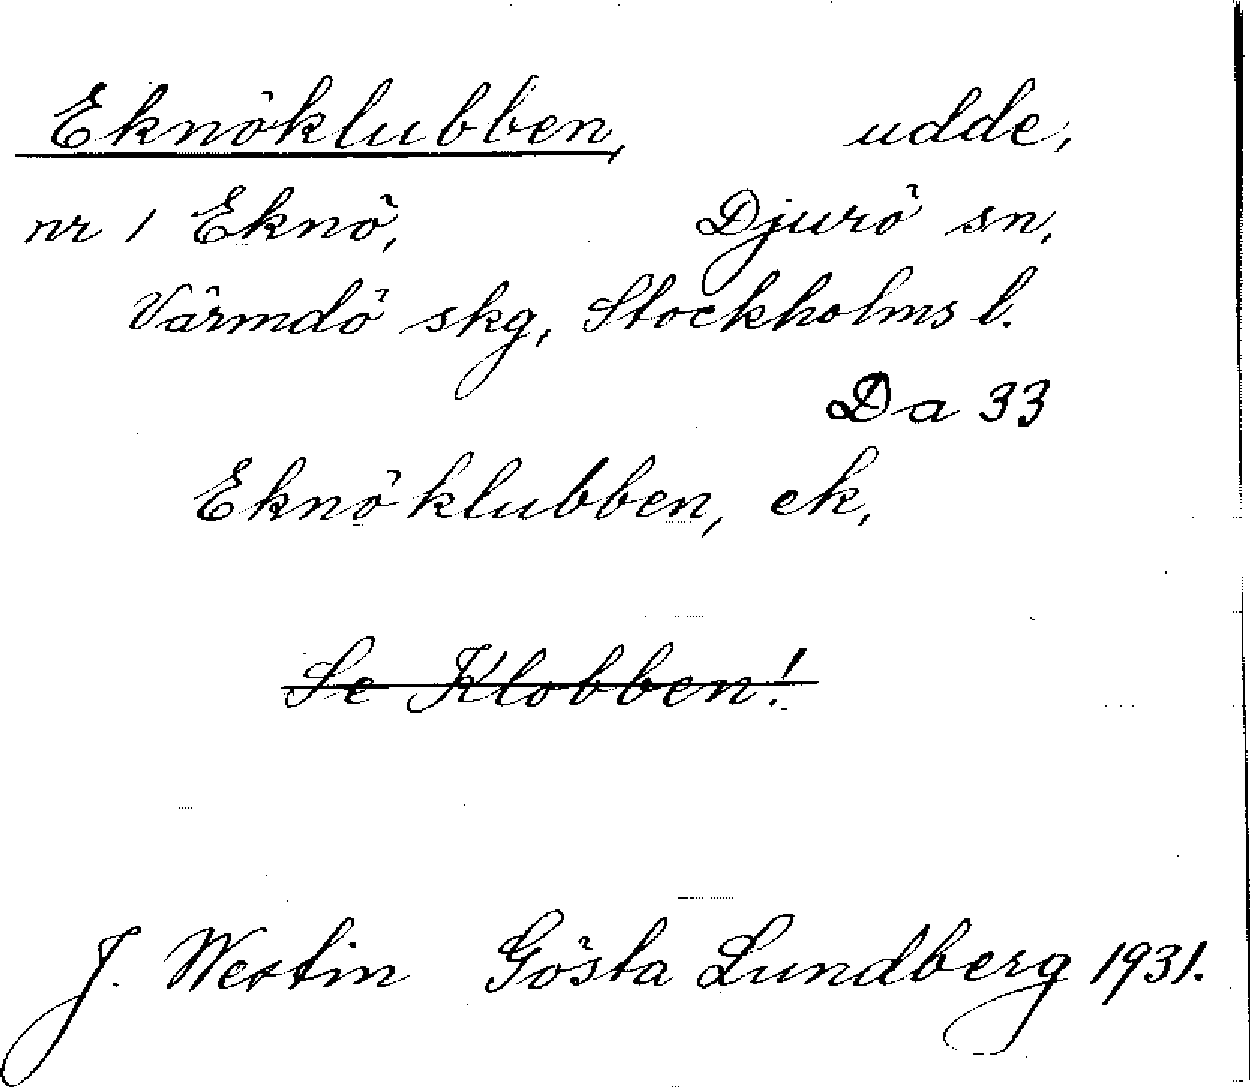 Eknöklubben, udde,
nr 1 Eknö, Djurö sn,
Värmdö skg, Stockholms l.
Da 33
Eknöklubben, ek,
Se Klobben!
J. Westin Gösta Lundberg 1931.